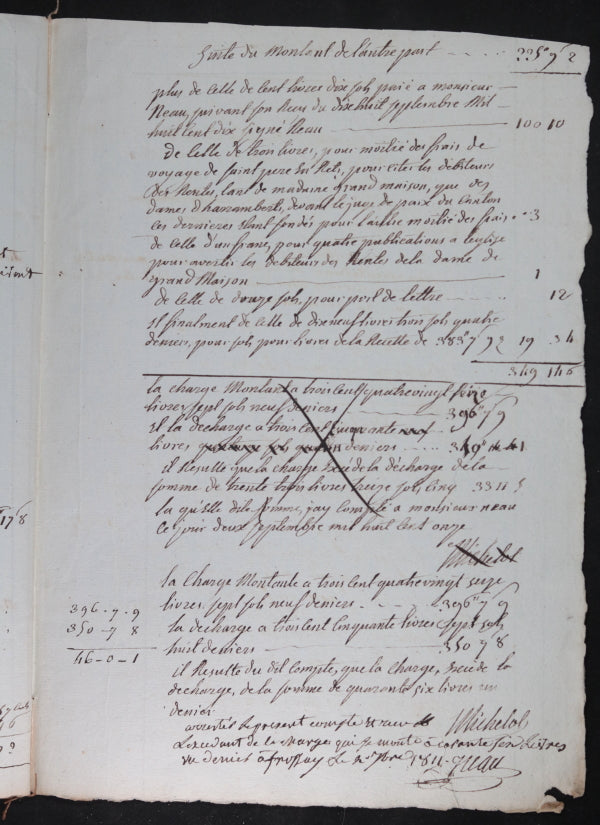 Suite du Montant de l'autre part 225 9 2
plus de Celle de Cent livres dix sols paié a monsieur
Neau, suivant son Recu du dixhuit septembre Mil
huit Cent dix signé Neau 100 10
De Celle de trois livres, pour moitié des frais de
voyage de Saint pere en Retz, pour citer les débiteurs
des Rentes, tant de madame Grand maison, que des
dames d'harambert, devant le juge de paix du Canton
les dernieres étant fondés pour l'autre moitié des frais 3
de Celle d'un franc, pour quatre publications a l'eglise
pour avertir les debiteurs des Rentes de la dame de
Grand Maison 1
de Celle de douze sols, pour port de lettre 12
Et finalment de Celle de dix neuf livres trois sols quatre
deniers, pour sols pour livres de la Recette de 383 7 9 19 3 4
349 14 6
la charge Montant a trois Cent quatrevingt seize
livres sept sols neuf deniers 396 7 9
Et la decharge a trois Cent
livres deniers
il Resulte que la charge Excéde la décharge de la
somme de trente trois livres treize sols cinq
la qu'elle dite somme, j'ay Compté a monsieur neau
Ce jour deux septembre mil huit Cent onze
Michelot
la Charge Montante a trois Cent quatrevingt seize
livres sept sols neuf deniers 396 7 9
la decharge a trois Cent Cinquante livres sept sols
huit deniers 350 7 8
396-7-9
350-7 8
46-0-1
il Resulte du dit Compte, que la charge, Excéde la
decharge, de la somme de quarante six livres un
denier
arrêté le present compte et recu Michelot
L'excedant de la charge qui se monte à carante six livres
un denier a frossay le 2 7bre 1811 Neau
17 8